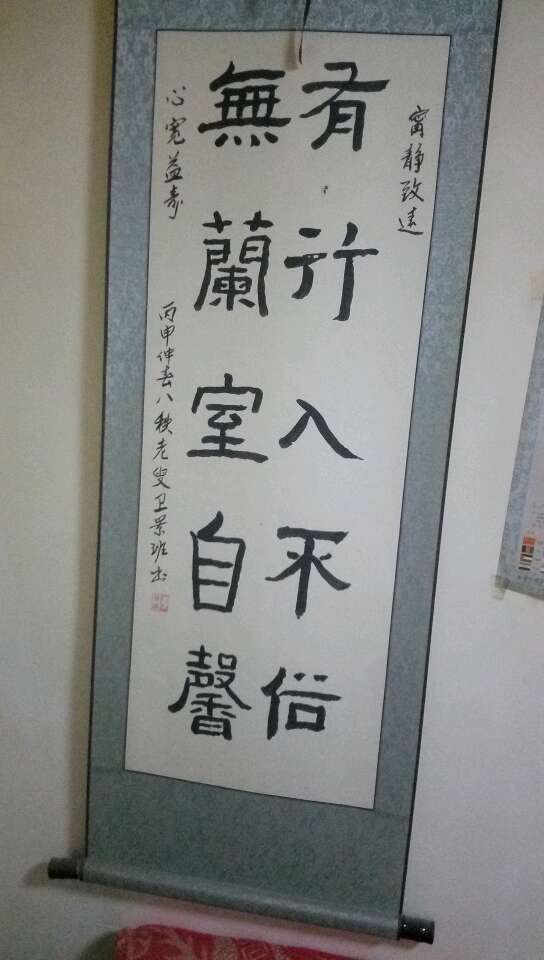 甯静致遠
有竹人不俗
無蘭室自馨
心宽益寿
丙申仲春八秩老叟卫景班书